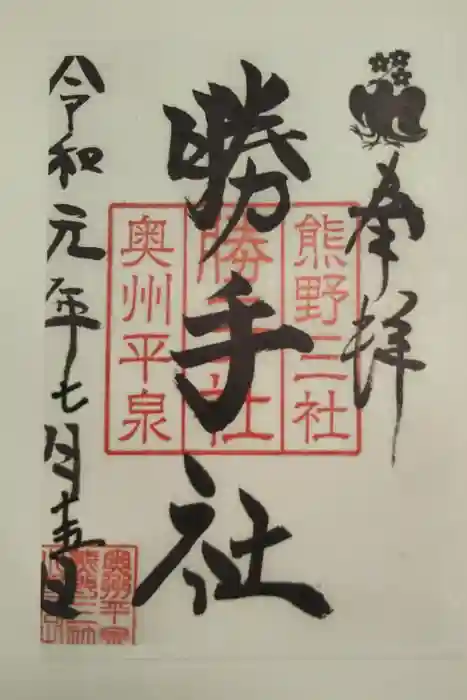 奉拝
熊野三社
勝手社
奥州平泉
勝手社
令和元年七月十五日
奥州平泉
熊野三社